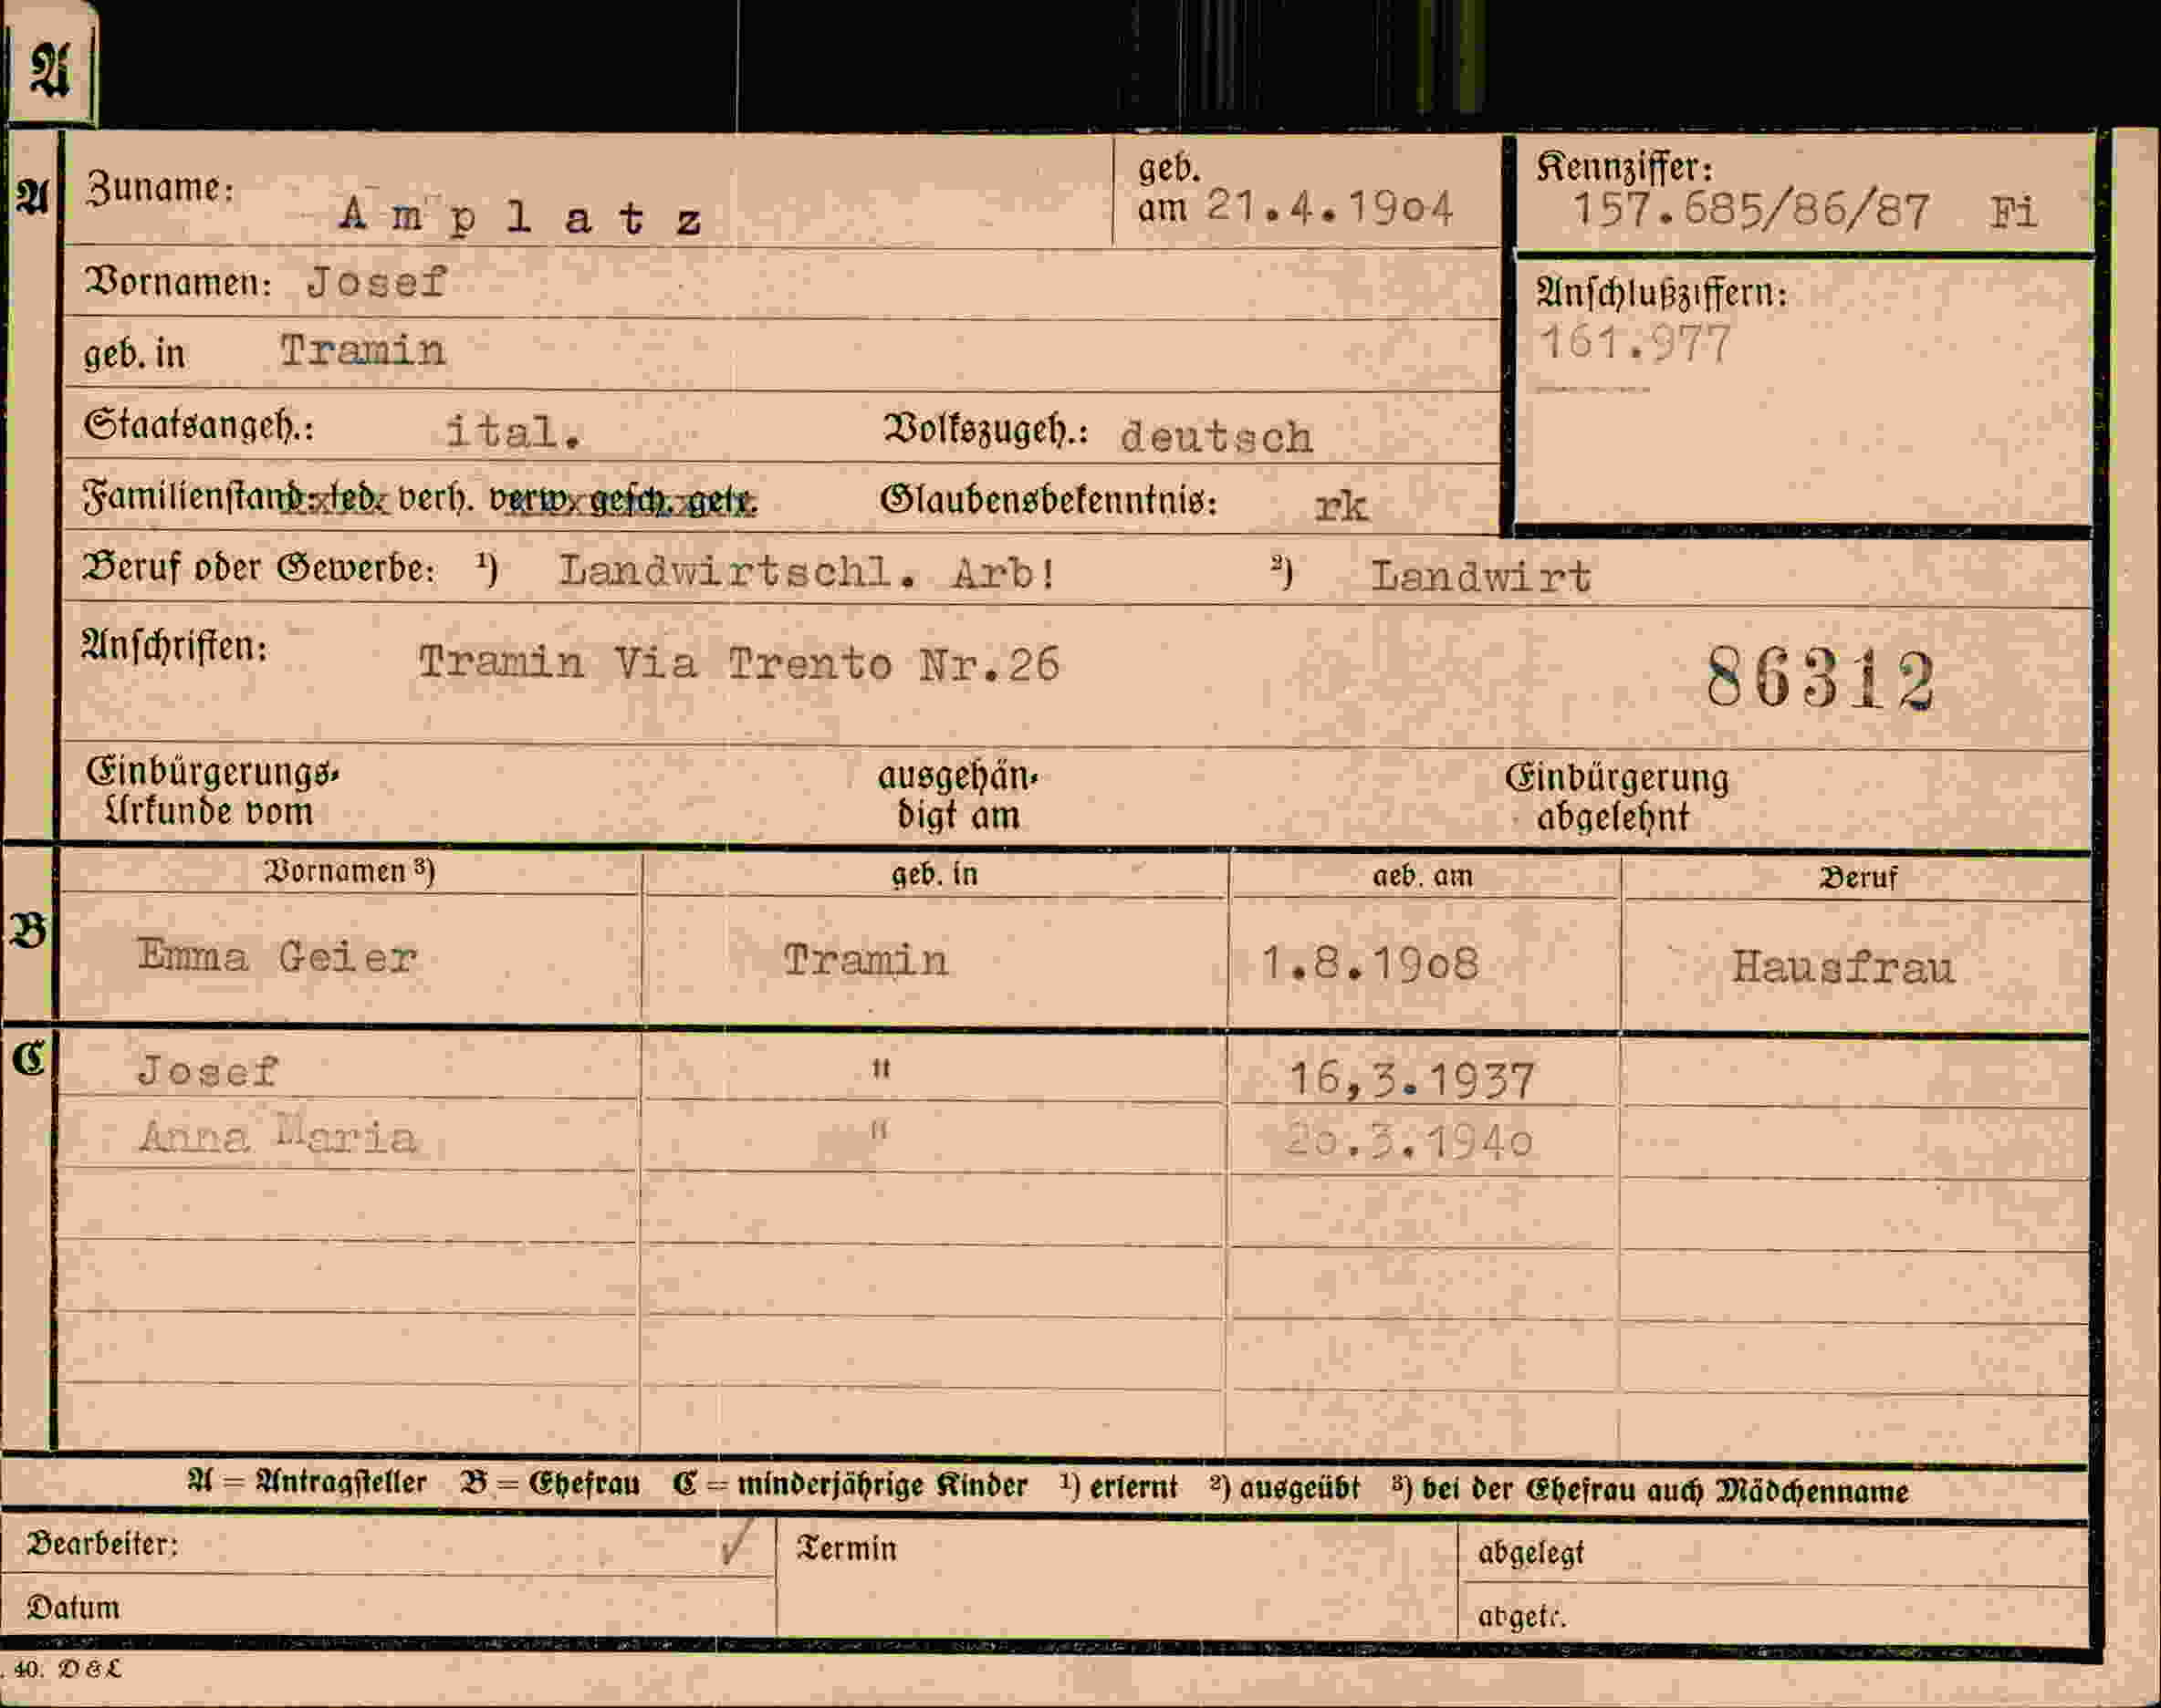 A
A
Zuname: Amplatz
geb. am 21.4.19o4
Kennziffer: 157.685/86/87 Fi
Vornamen: Josef
Anschlußziffern: 161.977
geb. in Tramin
Staatsangeh.: ital. Volkszugeh.: deutsch
Familienstand: led. verh. verw. gesch. getr. Glaubensbekenntnis: rk
Beruf oder Gewerbe: ¹) Landwirtschl. Arb! ²) Landwirt
Anschriften: Tramin Via Trento Nr.26 86312
Einbürgerungs-
Urkunde vom
ausgehän-
digt am
Einbürgerung
abgelehnt
Vornamen ³) geb. in geb. am Beruf
B Emma Geier Tramin 1.8.19o8 Hausfrau
C Josef " 16,3.1937
Anna Maria " 2o.3.194o
A = Antragsteller B = Ehefrau C = minderjährige Kinder ¹) erlernt ²) ausgeübt ³) bei der Ehefrau auch Mädchenname
Bearbeiter: ✓ Termin abgelegt
Datum abgetr.
. 40. D & L